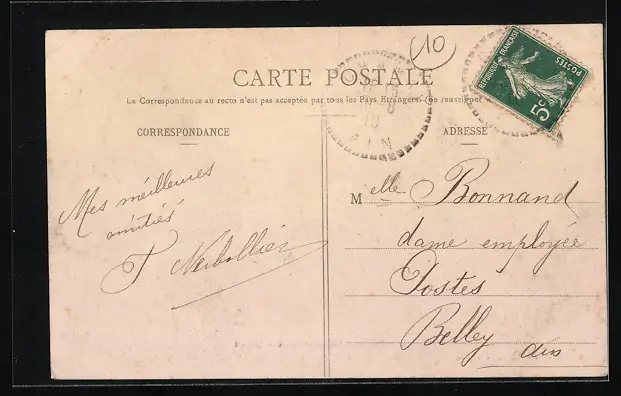 10
CARTE POSTALE
La Correspondance au recto n'est pas acceptée par tous les Pays Etrangers. (Se renseigner
CORRESPONDANCE
ADRESSE
RÉPUBLIQUE FRANÇAISE
POSTES
5c
10
AIN
Mes meilleures
amitiés
Melle Bonnand
dame employée
Postes
Belley